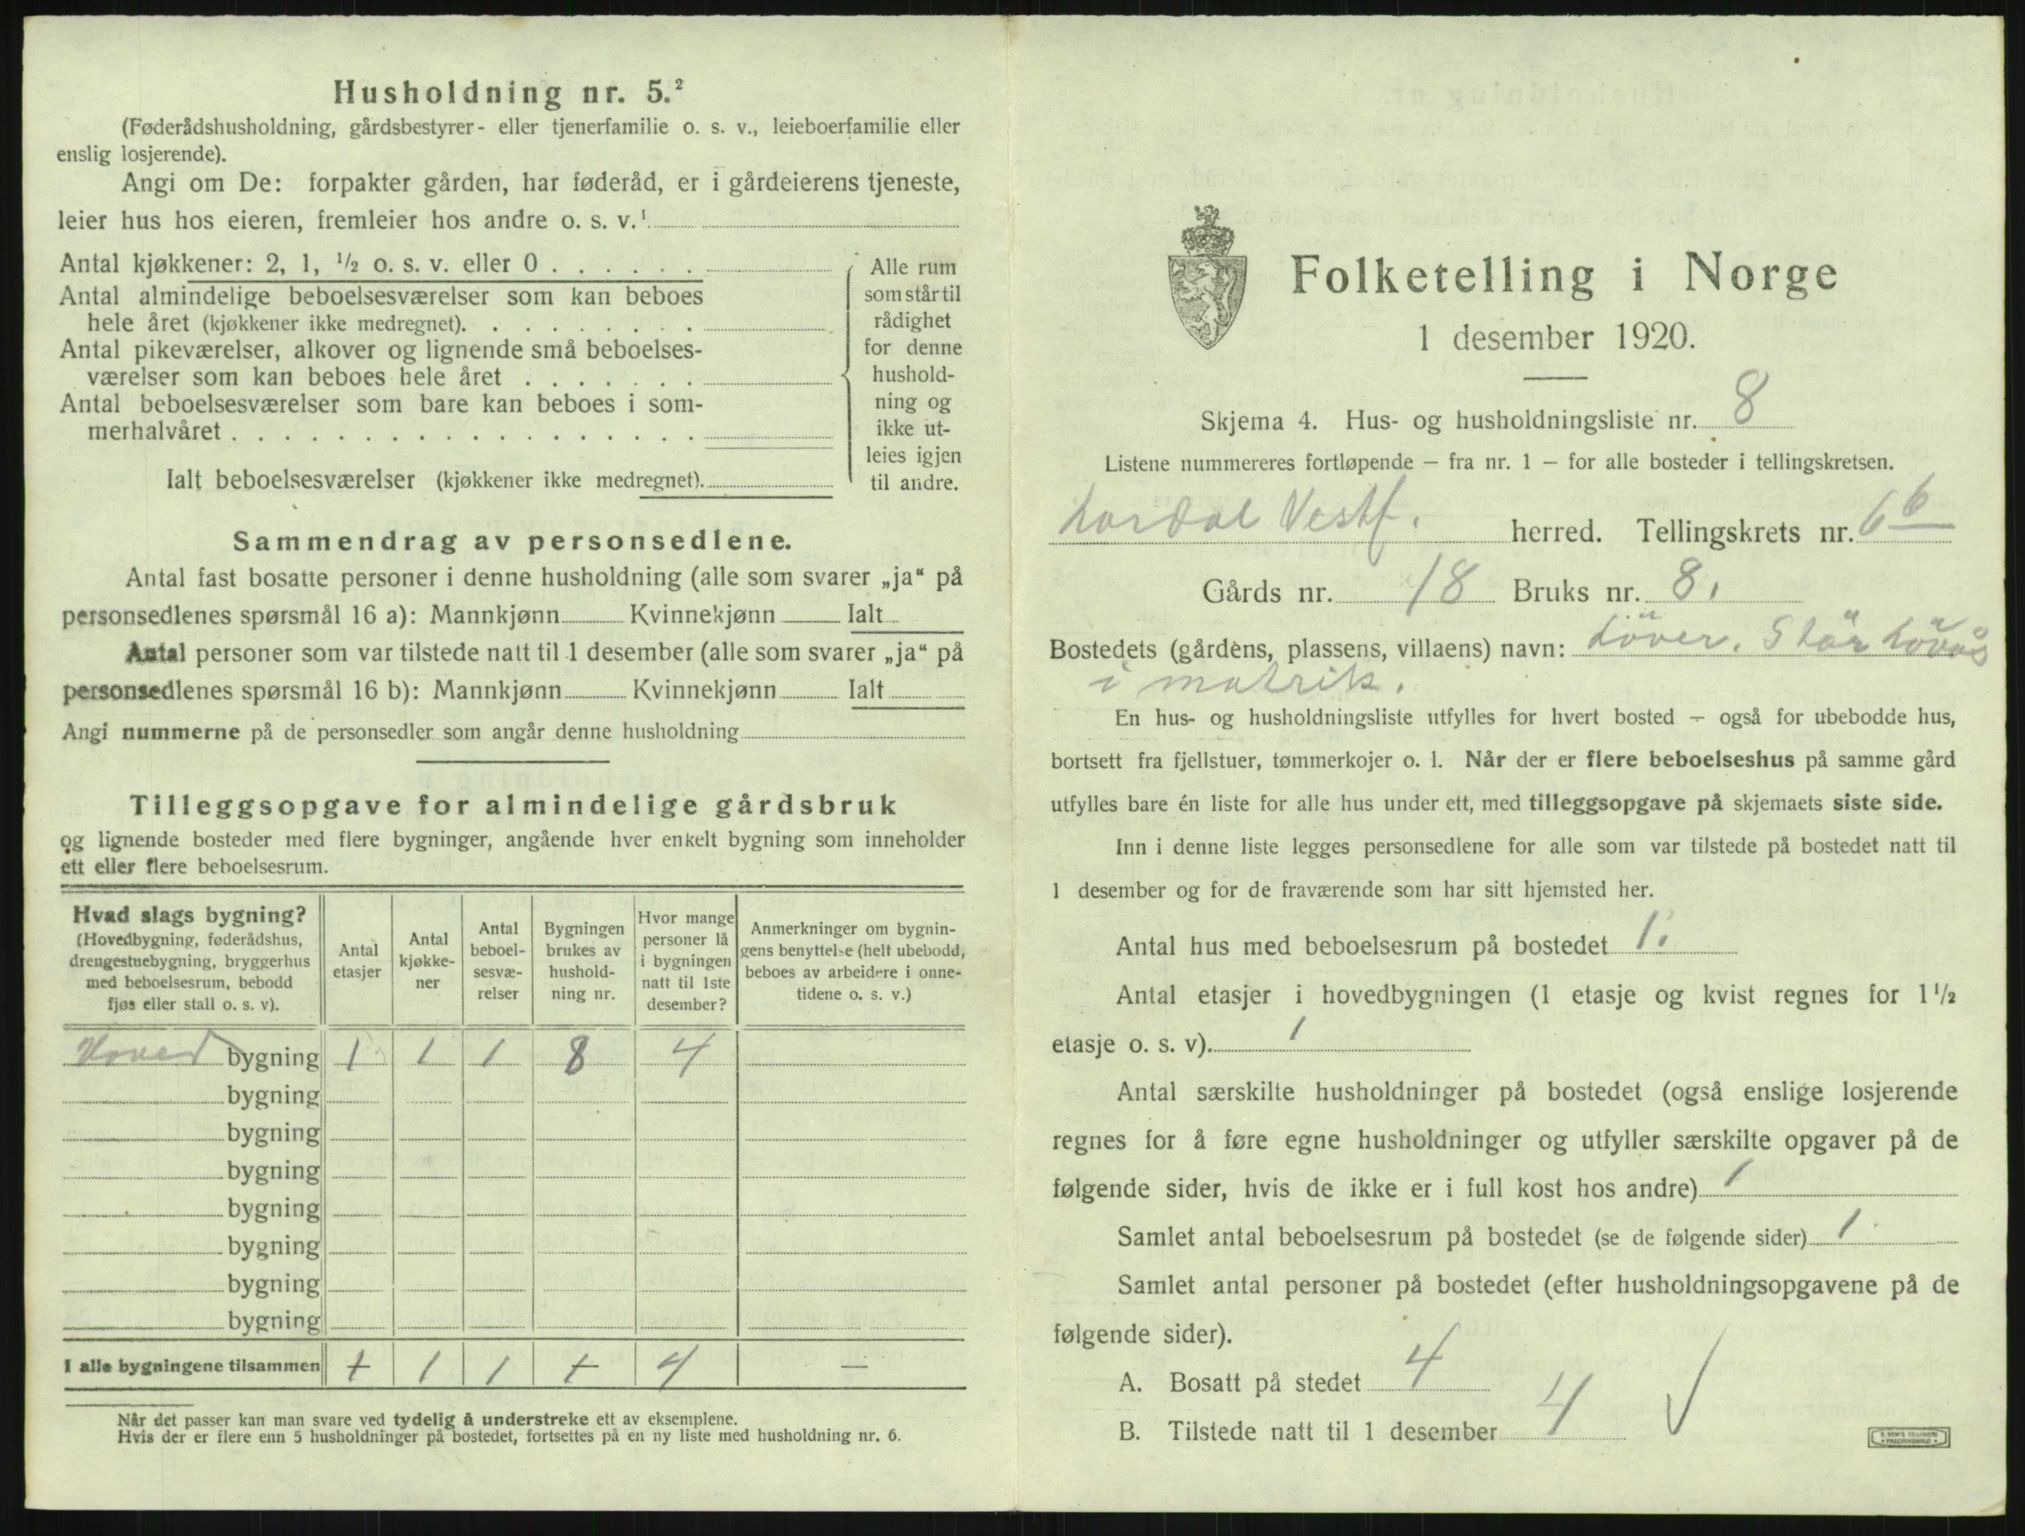 Husholdning nr. 5.²
(Føderådshusholdning, gårdsbestyrer- eller tjenerfamilie o. s. v., leieboerfamilie eller
enslig losjerende).
Angi om De: forpakter gården, har føderåd, er i gårdeierens tjeneste,
leier hus hos eieren, fremleier hos andre o. s. v.¹
Antal kjøkkener: 2, 1, ½ o. s. v. eller 0 . . . . . .
Antal almindelige beboelsesværelser som kan beboes
hele året (kjøkkener ikke medregnet). . . . . . . . .
Antal pikeværelser, alkover og lignende små beboelses-
værelser som kan beboes hele året . . . . . . .
Antal beboelsesværelser som bare kan beboes i som-
merhalvåret . . . . . . . . . . . . . . . . . .
Ialt beboelsesværelser (kjøkkener ikke medregnet).
Alle rum
som står til
rådighet
for denne
hushold-
ning og
ikke ut-
leies igjen
til andre.
Sammendrag av personsedlene.
Antal fast bosatte personer i denne husholdning (alle som svarer „ja“ på
personsedlenes spørsmål 16 a): Mannkjønn Kvinnekjønn Ialt
Antal personer som var tilstede natt til 1 desember (alle som svarer „ja“ på
personsedlenes spørsmål 16 b): Mannkjønn Kvinnekjønn Ialt
Angi nummerne på de personsedler som angår denne husholdning
Tilleggsopgave for almindelige gårdsbruk
og lignende bosteder med flere bygninger, angående hver enkelt bygning som inneholder
ett eller flere beboelsesrum.
Hvad slags bygning?
(Hovedbygning, føderådshus,
drengestuebygning, bryggerhus
med beboelsesrum, bebodd
fjøs eller stall o. s. v).
Antal
etasjer
Antal
kjøkke-
ner
Antal
beboel-
sesvæ-
relser
Bygningen
brukes av
hushold-
ning nr.
Hvor mange
personer lå
i bygningen
natt til 1ste
desember?
Anmerkninger om bygnin-
gens benyttelse (helt ubebodd,
beboes av arbeidere i onne-
tidene o. s. v.)
Hoved bygning 1 1 1 8 4
bygning
bygning
bygning
bygning
bygning
bygning
bygning
I alle bygningene tilsammen + 1 1 + 4 —
Når det passer kan man svare ved tydelig å understreke ett av eksemplene.
Hvis der er flere enn 5 husholdninger på bostedet, fortsettes på en ny liste med husholdning nr. 6.
Folketelling i Norge
1 desember 1920.
Skjema 4. Hus- og husholdningsliste nr. 8
Listene nummereres fortløpende — fra nr. 1 — for alle bosteder i tellingskretsen.
Lardal Vestf. herred. Tellingskrets nr. 6 b
Gårds nr. 18 Bruks nr. 8.
Bostedets (gårdens, plassens, villaens) navn: Löver. Står Lövås
i matrik.
En hus- og husholdningsliste utfylles for hvert bosted — også for ubebodde hus,
bortsett fra fjellstuer, tømmerkojer o. l. Når der er flere beboelseshus på samme gård
utfylles bare én liste for alle hus under ett, med tilleggsopgave på skjemaets siste side.
Inn i denne liste legges personsedlene for alle som var tilstede på bostedet natt til
1 desember og for de fraværende som har sitt hjemsted her.
Antal hus med beboelsesrum på bostedet 1.
Antal etasjer i hovedbygningen (1 etasje og kvist regnes for 1½
etasje o. s. v). 1
Antal særskilte husholdninger på bostedet (også enslige losjerende
regnes for å føre egne husholdninger og utfyller særskilte opgaver på de
følgende sider, hvis de ikke er i full kost hos andre) 1
Samlet antal beboelsesrum på bostedet (se de følgende sider) 1.
Samlet antal personer på bostedet (efter husholdningsopgavene på de
følgende sider).
A. Bosatt på stedet 4
B. Tilstede natt til 1 desember 4